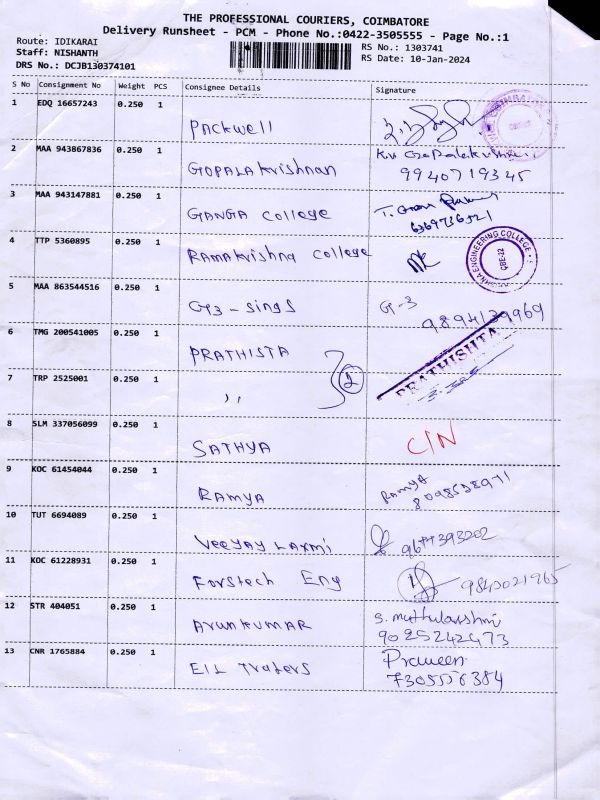 THE PROFESSIONAL COURIERS, COIMBATORE
Delivery Runsheet - PCM - Phone No.:0422-3505555 - Page No.:1
Route: IDIKARAI
Staff: NISHANTH
DRS No.: DCJB130374101
RS No.: 1303741
RS Date: 10-Jan-2024
S No Consignment No Weight PCS Consignee Details Signature
1 EDQ 16657243 0.250 1
Packwell
2 MAA 943867836 0.250 1
GOPALAkrishnan 9940719345
3 MAA 943147881 0.250 1
GANGA College 6369736521
4 TTP 5360895 0.250 1
RAMAkrishna College
ENGINEERING COLLEGE
CBE-22
5 MAA 863544516 0.250 1
G3 - sings G-3
9894139969
6 TMG 200541005 0.250 1
PRATHISTA 2 PRATHISHTA
7 TRP 2525001 0.250 1
,,
8 SLM 337056099 0.250 1
SATHYA C/N
9 KOC 61454044 0.250 1
RAMYA Ramya
8098528971
10 TUT 6694089 0.250 1
Veejay Laxmi 9677393202
11 KOC 61228931 0.250 1
Forstech Eng 9843021965
12 STR 404051 0.250 1
Arunkumar S. muthulakshmi
9025242473
13 CNR 1765884 0.250 1
EIL Traders Praveen
7305556384